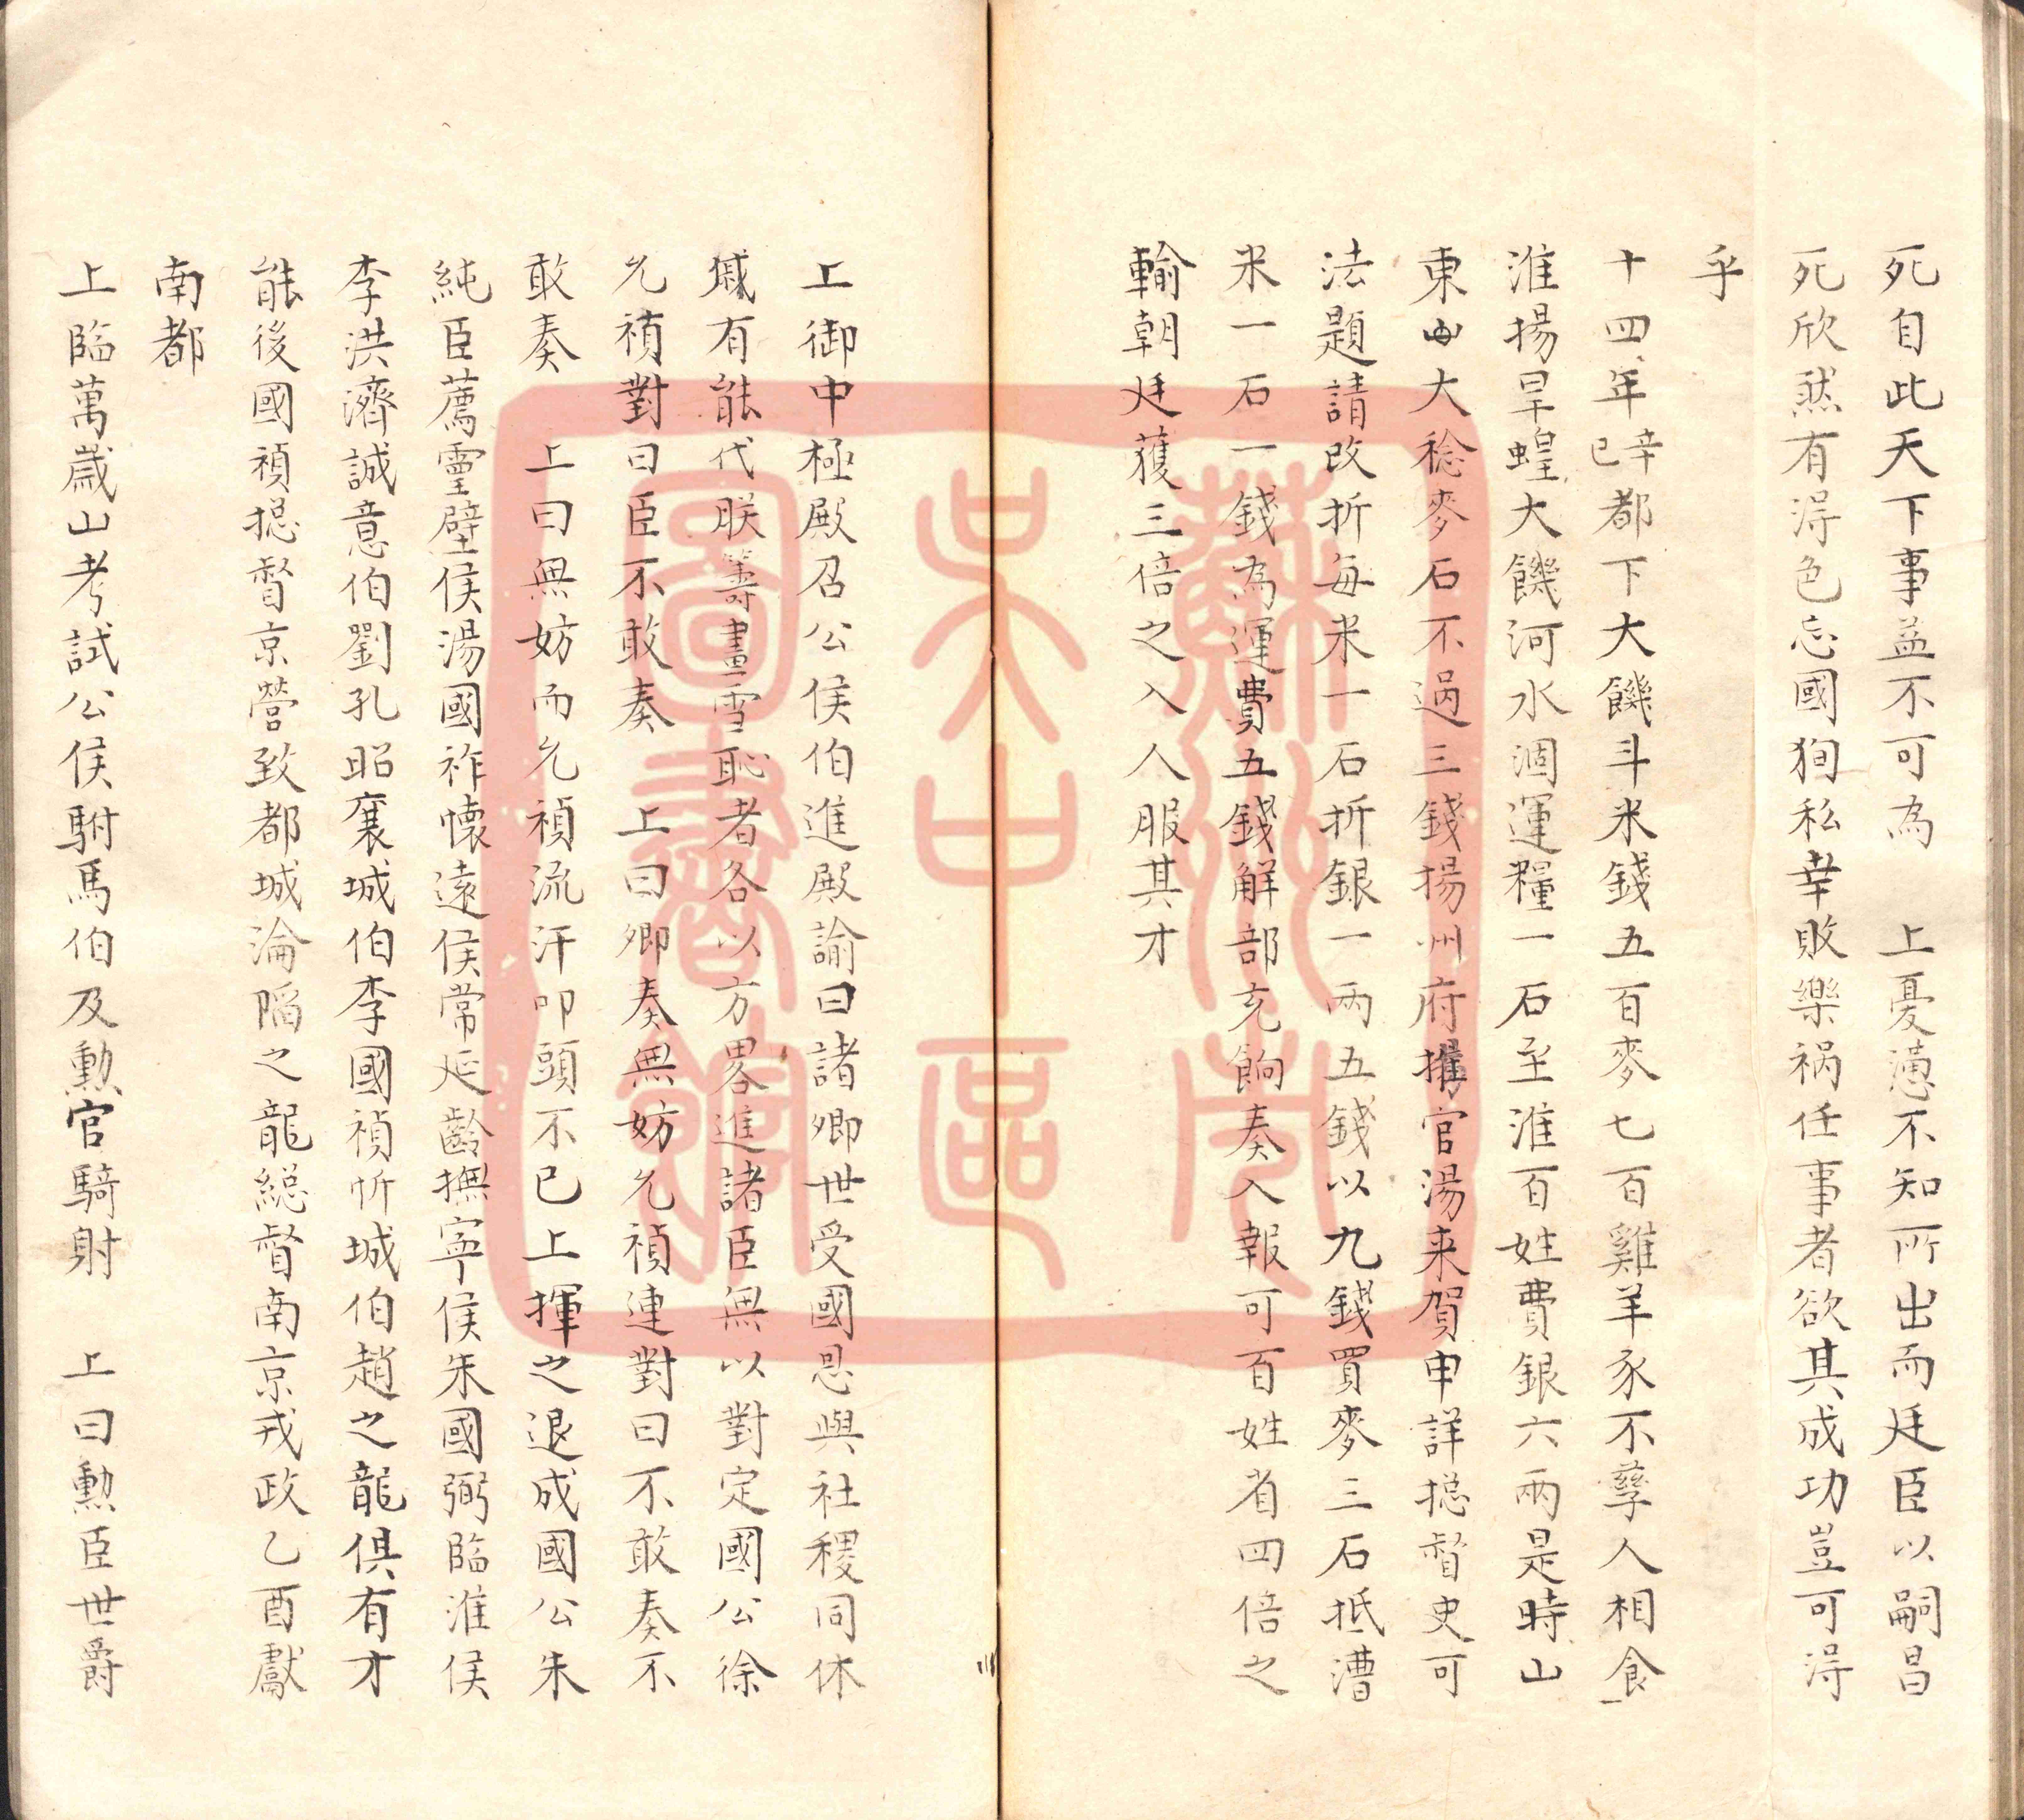 死自此天下事益不可為　上憂懑不知所出而廷臣以嗣昌
死欣然有淂色忘國狥私幸敗樂禍任事者欲其成功豈可淂
乎
十四年辛巳都下大饑斗米錢五百麥七百雞羊豕不孳人相食
淮揚旱蝗大饑河水涸運糧一石至淮百姓費銀六兩是時山
東大稔麥石不過三錢揚州府攉官湯来賀申詳捴督史可
法題請改折每米一石折銀一兩五錢以九錢買麥三石抵漕
米一石一錢為運費五錢解部充餉奏入報可百姓省四倍之
輸朝廷獲三倍之入人服其才
上御中極殿召公侯伯進殿諭曰諸卿世受國恩與社稷同休
戚有能代朕籌畫雪恥者各以方畧進諸臣無以對定國公徐
允禎對曰臣不敢奏　上曰卿奏無妨允禎連對曰不敢奏不
敢奏　上曰無妨而允禎流汗叩頭不已上揮之退成國公朱
純臣薦靈壁侯湯國祚懷遠侯常延齡撫寧侯朱國弼臨淮侯
李洪濟誠意伯劉孔昭襄城伯李國禎忻城伯趙之龍俱有才
能後國禎捴督京營致都城淪陷之龍總督南京戎政乙酉獻
南都
上臨萬歲山考試公侯駙馬伯及勲官騎射　上曰勲臣世爵
蘇州市
吳中區
圖書館